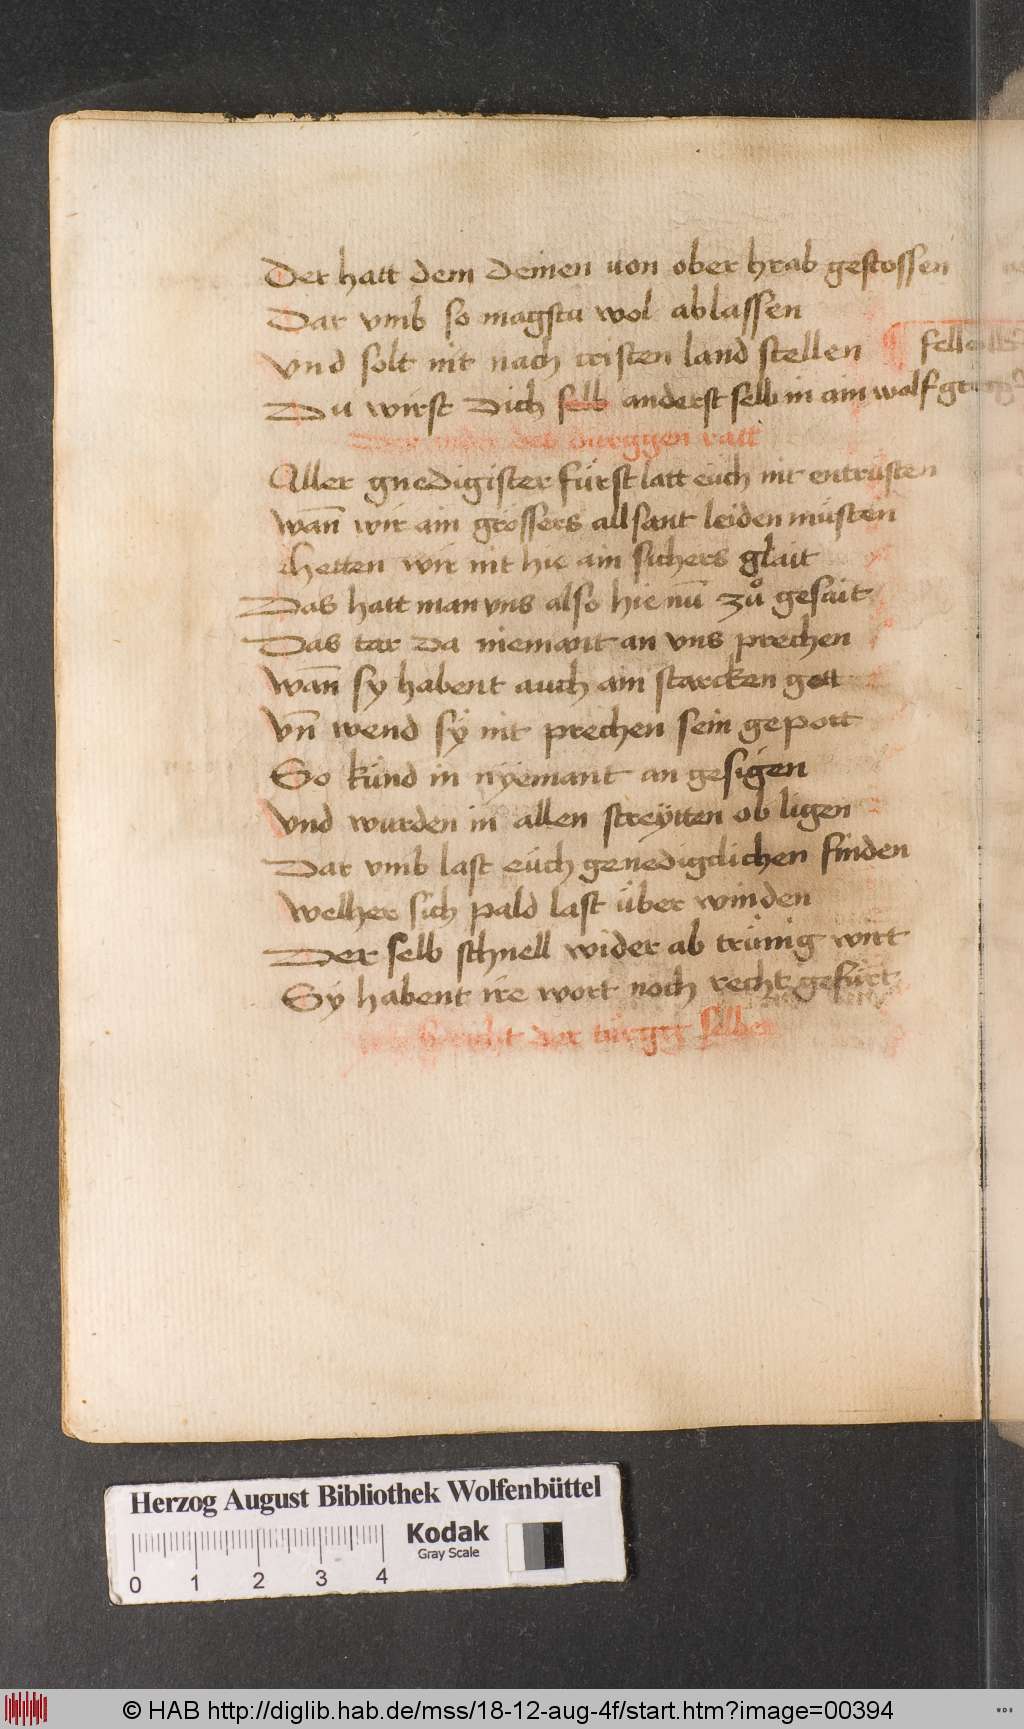 Der hatt dem deinen von ober hrab gestossen
Dar vmb so magstu wol ablassen
Vnd solt nit nach cristen land stellen
fellen
Du wirst dich selb anderst selb in ain wolfgrůb
des durggen ratt
Aller gnedigister fürst latt eüch nit entrüsten
Wan̄ wir ain grossers allsant leiden müsten
Hetten wir nit hie ain sichers glait
Das hatt man vns also hie nu̅ zů gesait
Das tar da niemant an vns prechen
Wan̄ sy habent auch ain starcken gott
Vn̄ wend sÿ nit prechen sein gepott
So künd in nÿemant an gesigen
Vnd wurden in allen streÿtten ob ligen
Dar vmb last eüch genedigclichen finden
Welher sich pald last über winden
Der selb schnell wider ab trünig wirt
Sÿ habent ire wort noch recht gefürt
der türgg selber
Herzog August Bibliothek Wolfenbüttel
Kodak
Gray Scale
0 1 2 3 4
© HAB http://diglib.hab.de/mss/18-12-aug-4f/start.htm?image=00394